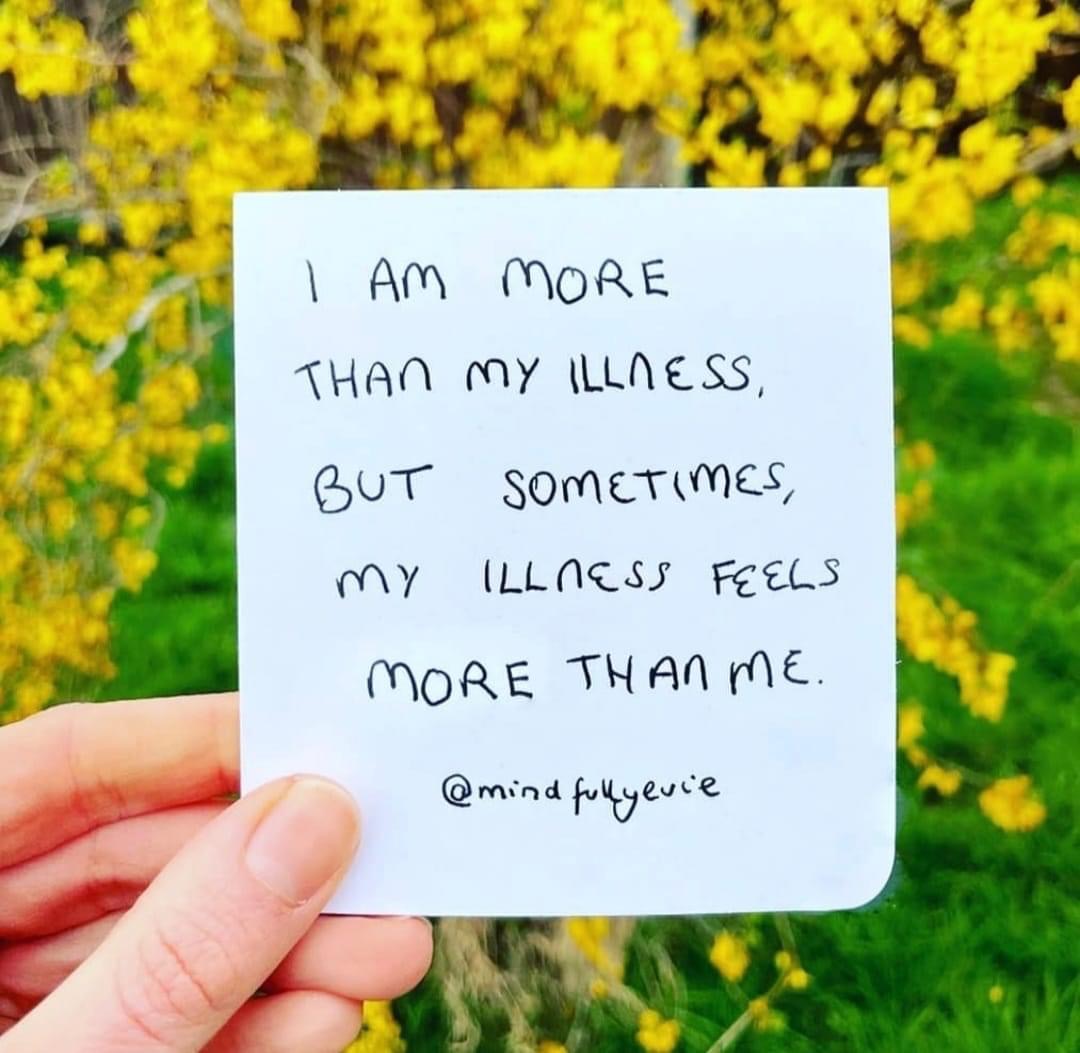 I AM MORE
THAN MY ILLNESS,
BUT SOMETIMES,
MY ILLNESS FEELS
MORE THAN ME.
@mindfullyevie